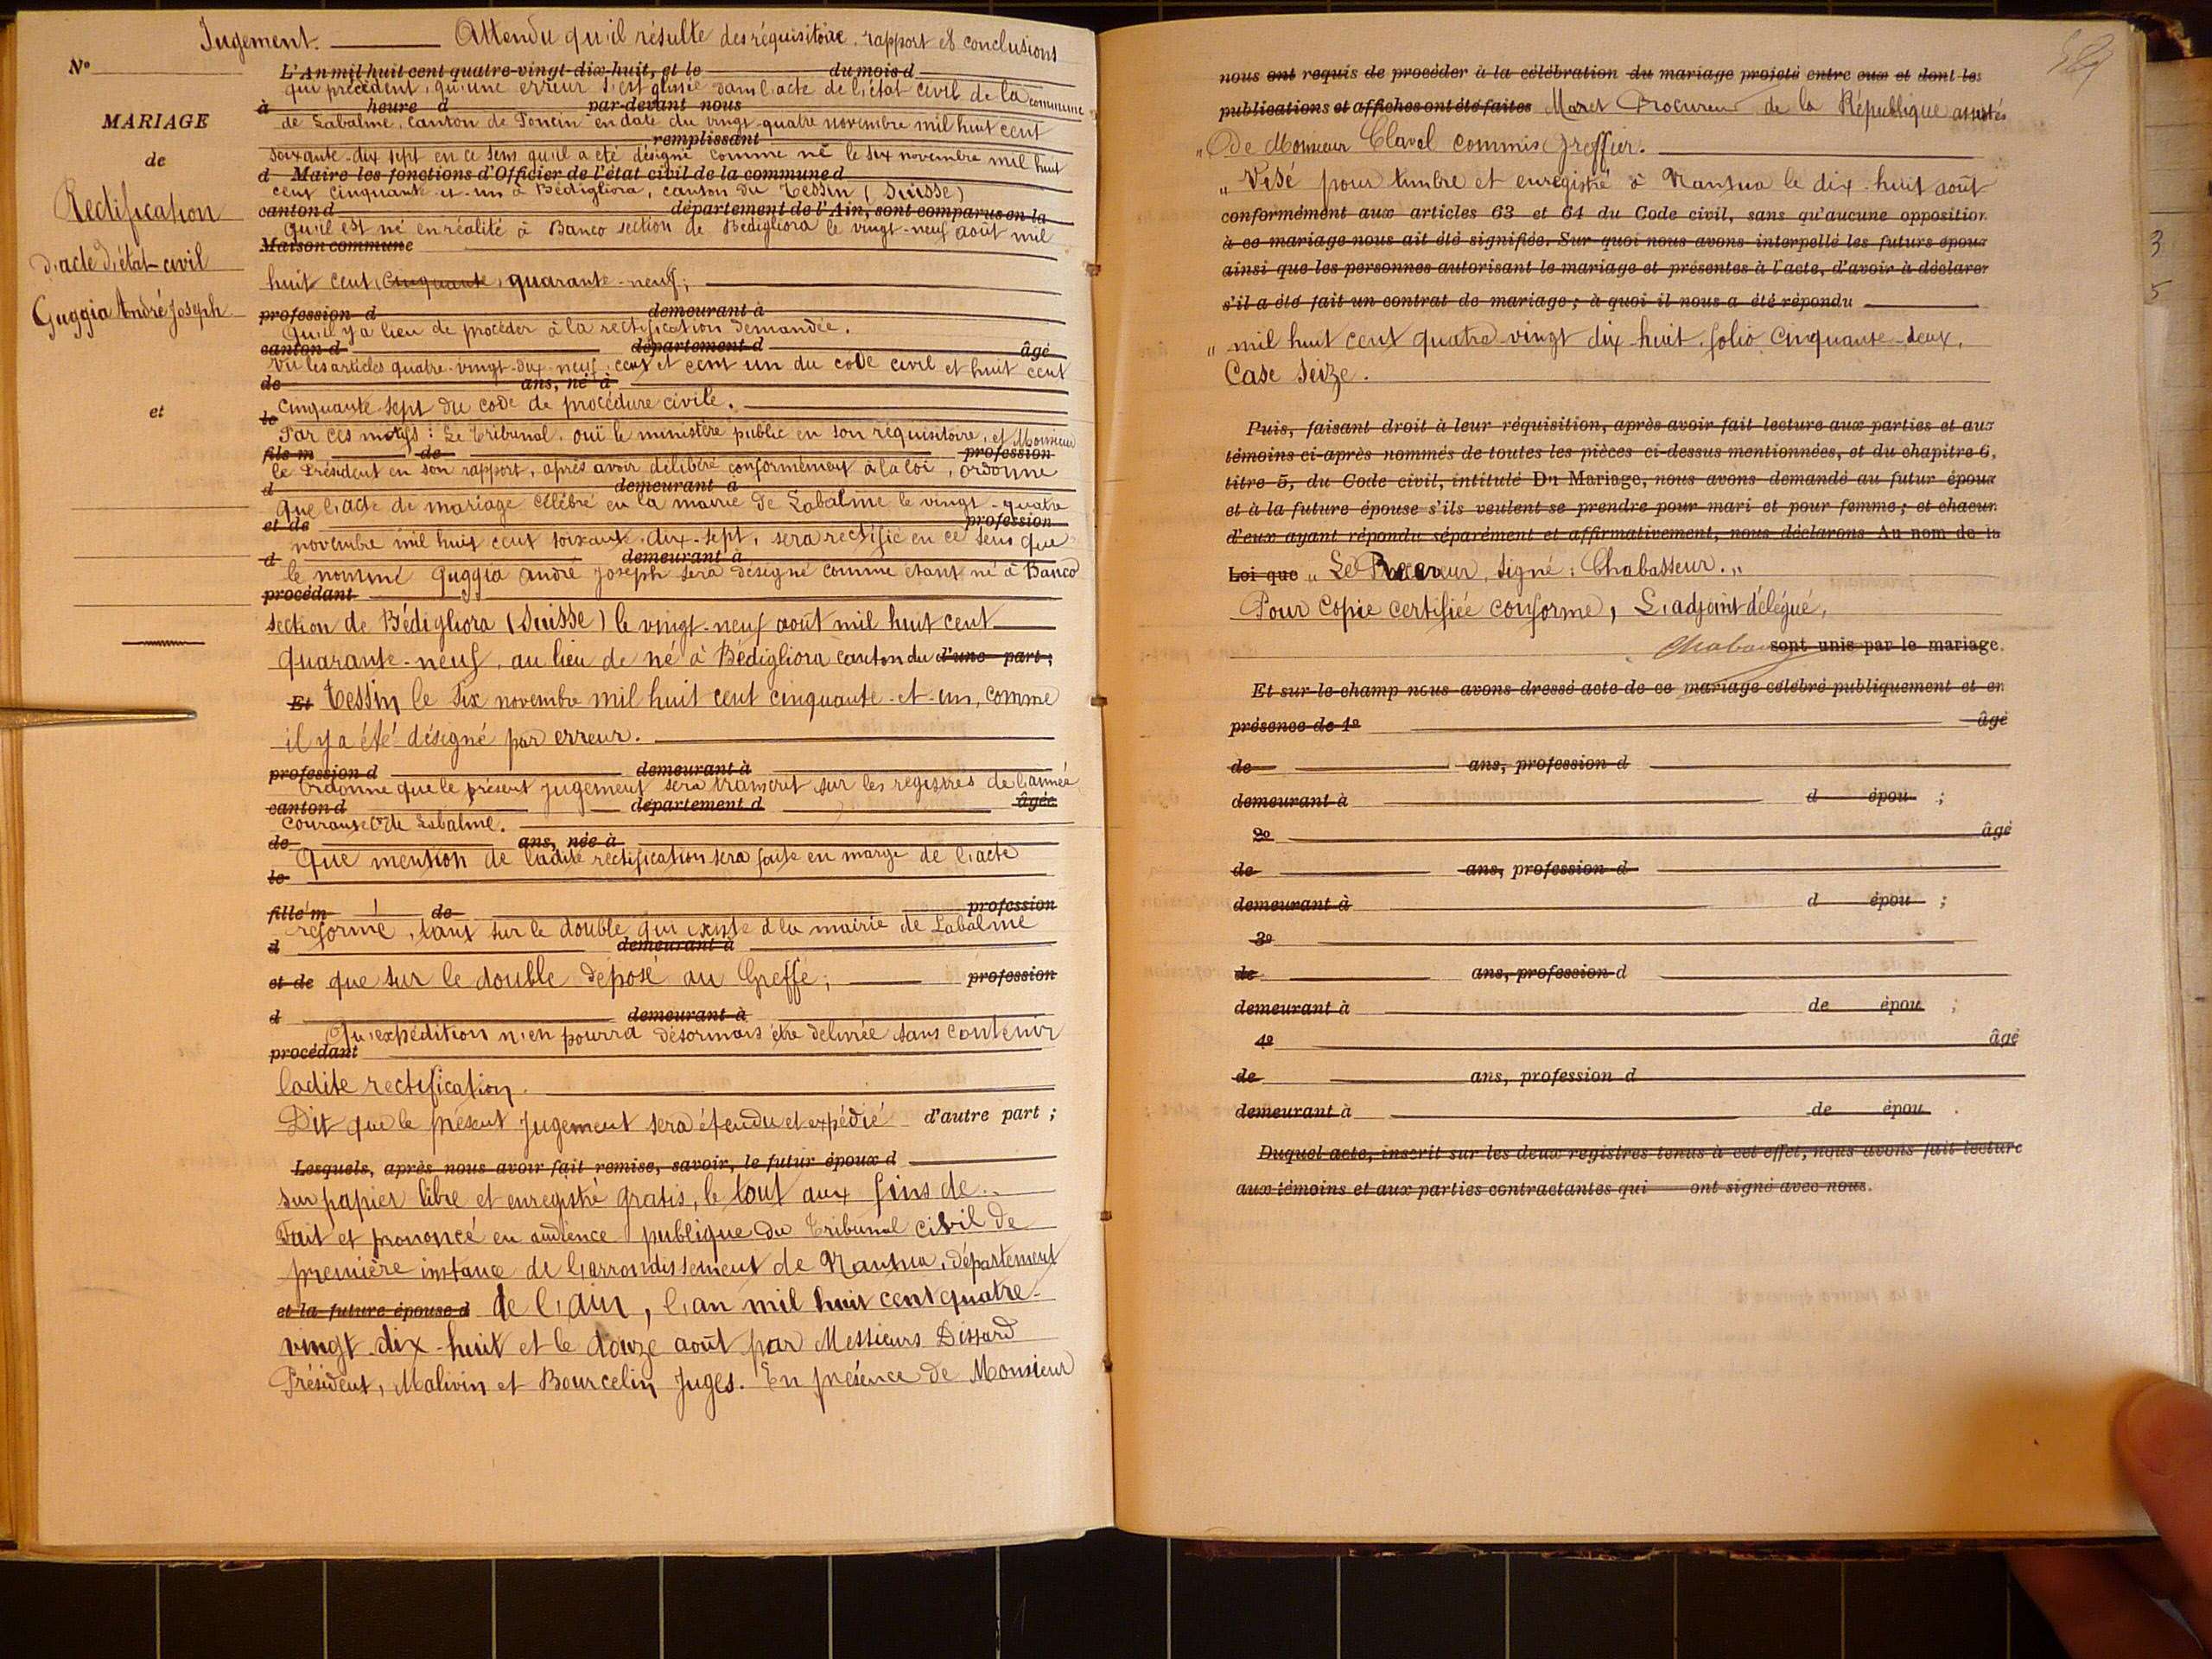 Jugement. Attendu qu'il résulte des réquisitoire, rapport et conclusions
N°
L'An mil huit cent quatre-vingt-dix-huit, et le du mois d
qui précèdent, qu'une erreur s'est glissée dans l'acte de l'état civil de la commune
à heure d par-devant nous
MARIAGE
de Labalme, canton de Poncin en date du vingt-quatre novembre mil huit cent
remplissant
de
soixante-dix sept en ce sens qu'il a été désigné comme né le six novembre mil huit
d Maire les fonctions d'Officier de l'état civil de la commune d
cent cinquante-et-un à Bédigliora, canton du Tessin (Suisse)
Rectification
canton d département de l'Ain, sont comparus en la
qu'il est né en réalité à Banco section de Bédigliora le vingt-neuf août mil
Maison commune
d'acte d'état-civil
huit cent cinquante, quarante-neuf;
Guggia André Joseph
profession d demeurant à
Qu'il y a lieu de procéder à la rectification demandée.
canton d département d âgé
Vu les articles quatre-vingt-dix-neuf, cent et cent un du code civil et huit cent
de ans, né à
cinquante-sept du code de procédure civile.
et
le
Par ces motifs: Le Tribunal, ouï le ministère public en son réquisitoire, et Monsieur
fils m de profession
le Président en son rapport, après avoir délibéré conformément à la loi, ordonne
d demeurant à
que l'acte de mariage célébré en la mairie de Labalme le vingt-quatre
et de profession
novembre mil huit cent soixante-dix-sept, sera rectifié en ce sens que
d demeurant à
le nommé Guggia André Joseph sera désigné comme étant né à Banco
procédant
section de Bédigliora (Suisse) le vingt-neuf août mil huit cent
quarante-neuf, au lieu de né à Bédigliora canton du d'une part;
Et Tessin le six novembre mil huit cent cinquante-et-un, comme
il y a été désigné par erreur.
profession d demeurant à
Ordonne que le présent jugement sera transcrit sur les registres de l'année
canton d département d âgée
courante de Labalme.
de ans, née à
Que mention de ladite rectification sera faite en marge de l'acte
le
fille m de profession
réformé, tant sur le double qui existe à la mairie de Labalme
d demeurant à
et de que sur le double déposé au Greffe; profession
d demeurant à
Qu'expédition n'en pourra désormais être délivrée sans contenir
procédant
ladite rectification.
Dit que le présent jugement sera étendu et expédié d'autre part;
Lesquels, après nous avoir fait remise, savoir, le futur époux d
sur papier libre et enregistré gratis, le tout aux fins de.
Fait et prononcé en audience publique du Tribunal civil de
première instance de l'arrondissement de Nantua, département
et la future épouse d de l'Ain, l'an mil huit cent quatre-
vingt-dix-huit et le douze août par Messieurs Dissard
Président, Malivin et Bourcelin juges. En présence de Monsieur
nous ont requis de procéder à la célébration du mariage projeté entre eux et dont les
publications et affiches ont été faites Maret Procureur de la République assistés
„ de Monsieur Clavel commis greffier.
„ Visé pour timbre et enregistré à Nantua le dix-huit août
conformément aux articles 63 et 64 du Code civil, sans qu'aucune opposition
à ce mariage nous ait été signifiée. Sur quoi nous avons interpellé les futurs époux
ainsi que les personnes autorisant le mariage et présentes à l'acte, d'avoir à déclarer
s'il a été fait un contrat de mariage; à quoi il nous a été répondu
„ mil huit cent quatre-vingt dix-huit, folio cinquante-deux,
Case seize.
Puis, faisant droit à leur réquisition, après avoir fait lecture aux parties et aux
témoins ci-après nommés de toutes les pièces ci-dessus mentionnées, et du chapitre 6,
titre 5, du Code civil, intitulé Du Mariage, nous avons demandé au futur époux
et à la future épouse s'ils veulent se prendre pour mari et pour femme; et chacun
d'eux ayant répondu séparément et affirmativement, nous déclarons Au nom de la
Loi que „ Le Receveur, signé: Chabasseur. „
Pour copie certifiée conforme, L'adjoint délégué,
sont unis par le mariage.
Et sur-le-champ nous avons dressé acte de ce mariage célébré publiquement et en
présence de 1° âgé
de ans, profession d
demeurant à d épou ;
2° âgé
de ans, profession d
demeurant à d épou ;
3°
de ans, profession d
demeurant à de épou ;
4° âgé
de ans, profession d
demeurant à de épou .
Duquel acte, inscrit sur les deux registres tenus à cet effet, nous avons fait lecture
aux témoins et aux parties contractantes qui ont signé avec nous.
3
5